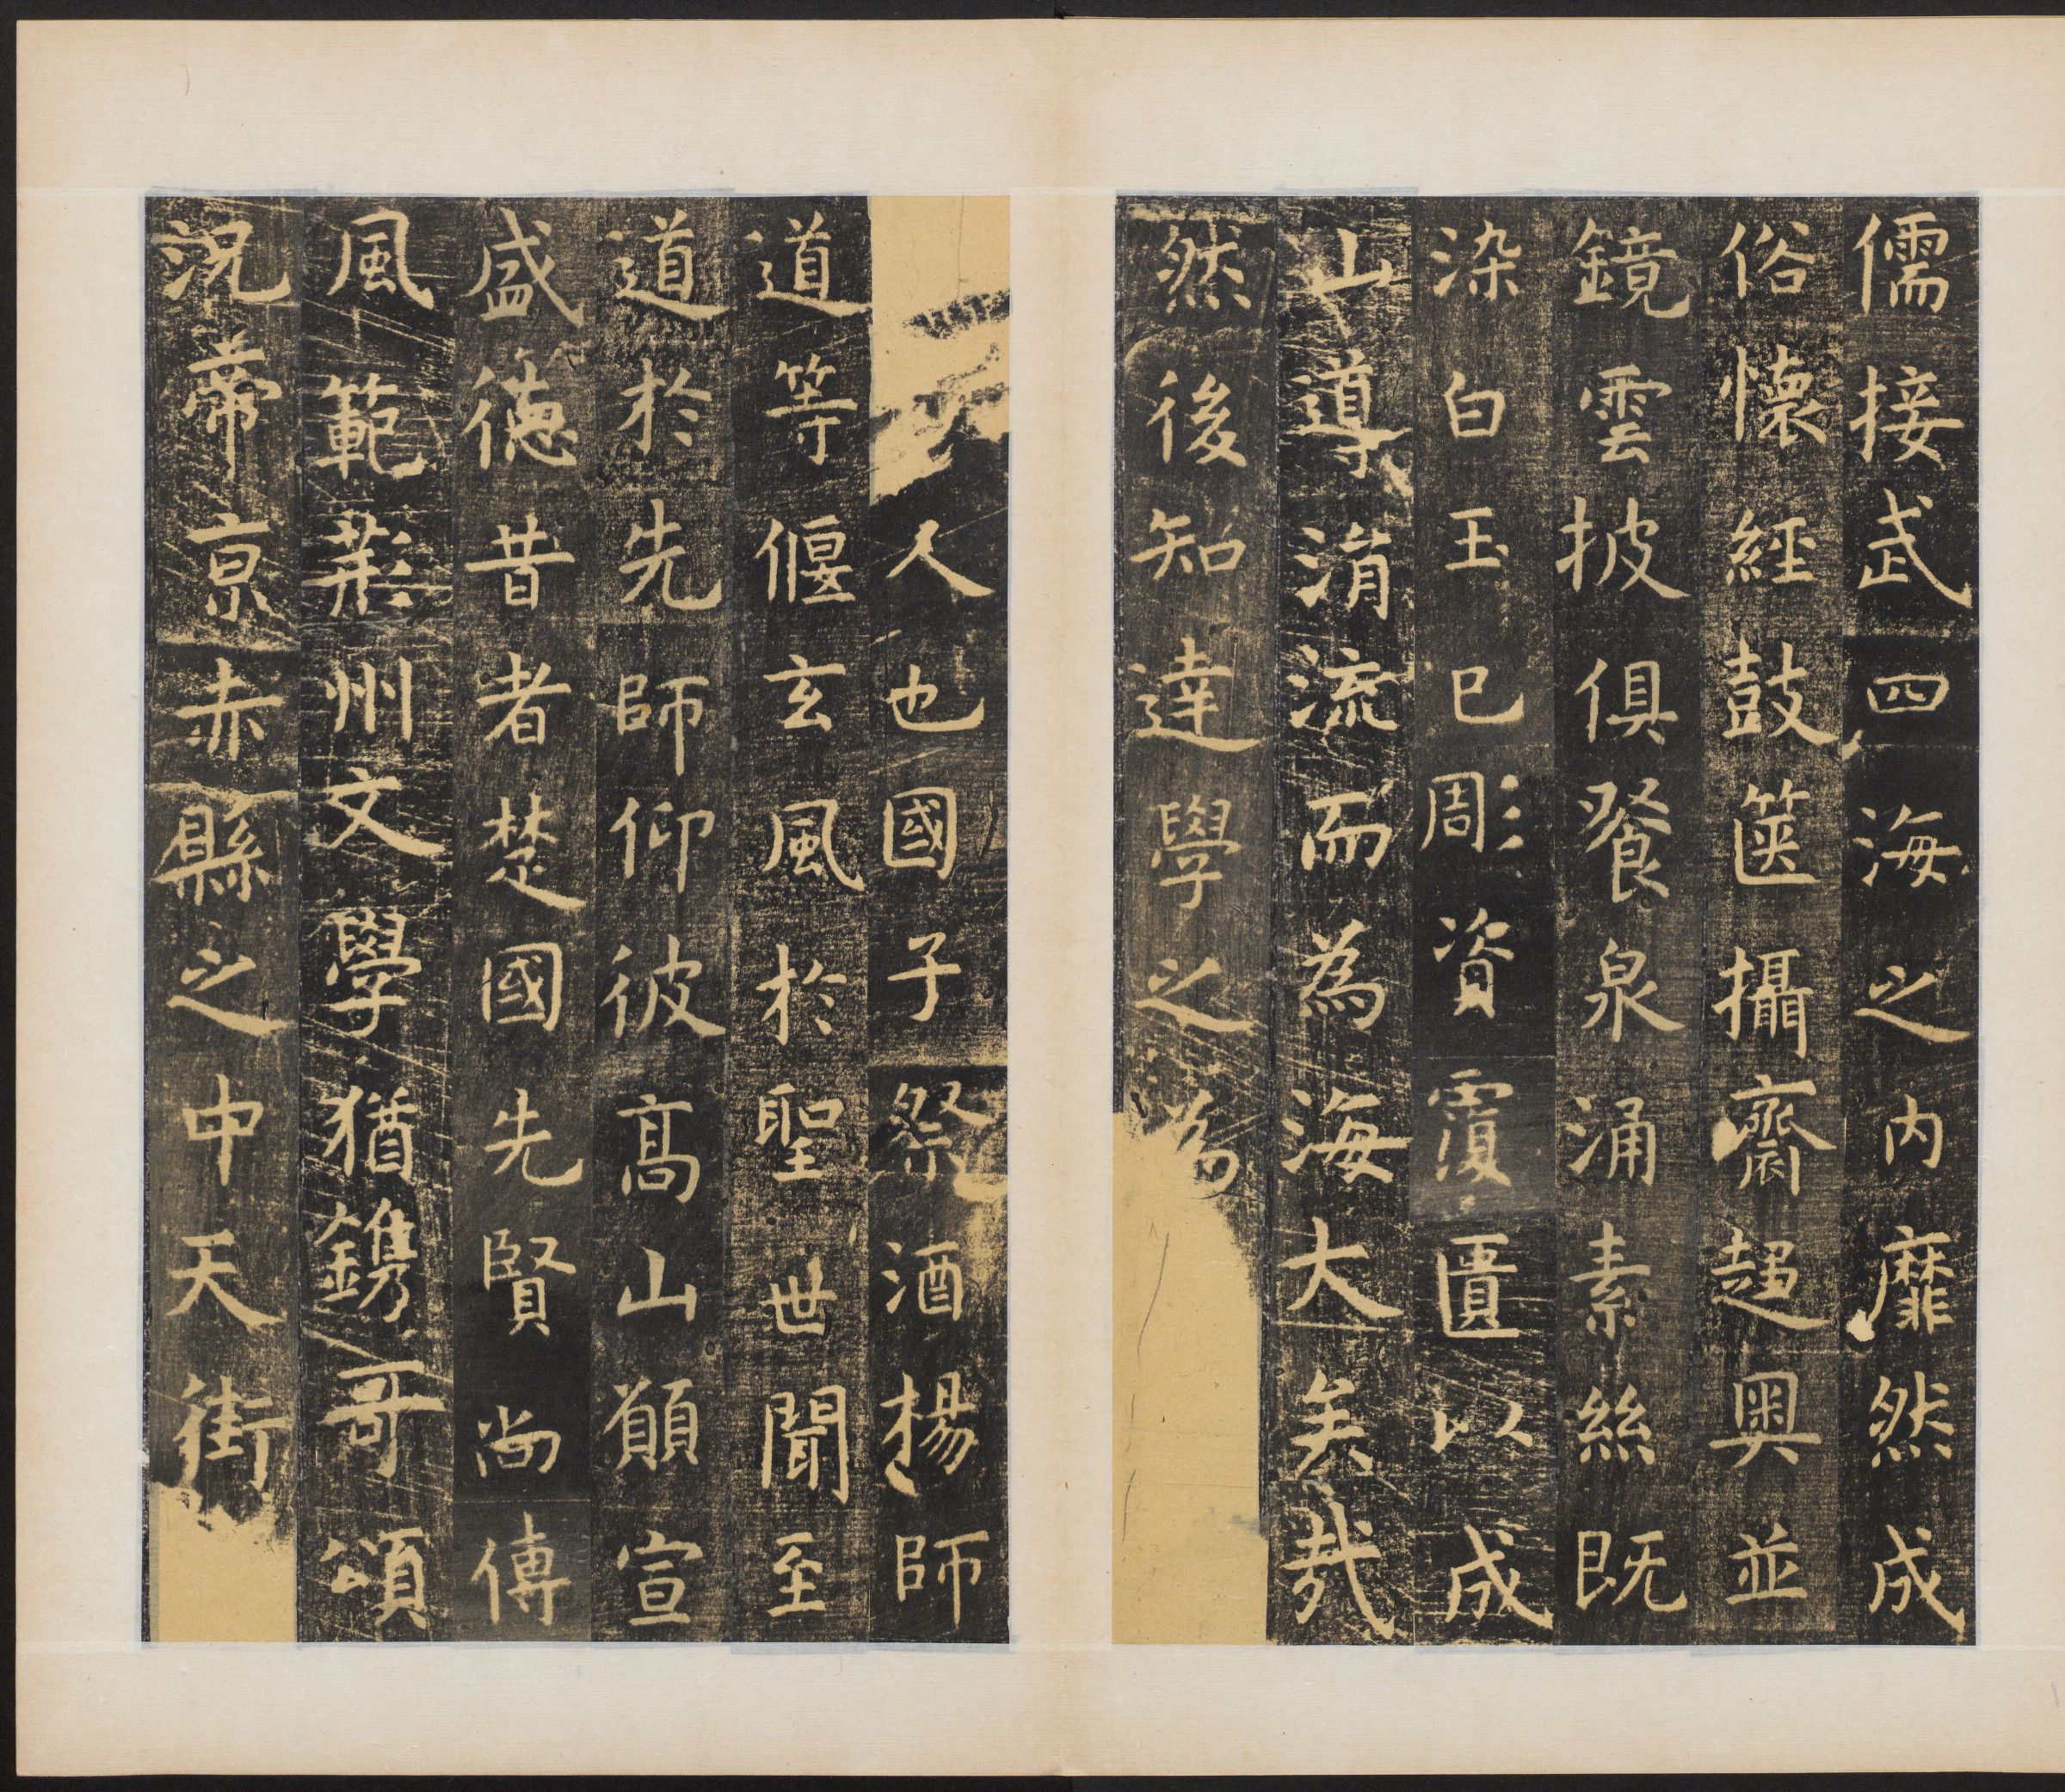 儒接武四海之内靡然成
俗懷經鼓篋攝齋趍奥並
鏡雲披俱飡泉涌素絲既
染白玉已彫資覆匱以成
山導涓流而為海大矣㢤
然後知達學之為
人也國子祭酒楊師
道等偃玄風於聖世聞至
道於先師仰彼髙山願宣
盛德昔者楚國先賢尚傳
風範荊州文學猶鐫哥頌
況帝京赤縣之中天街